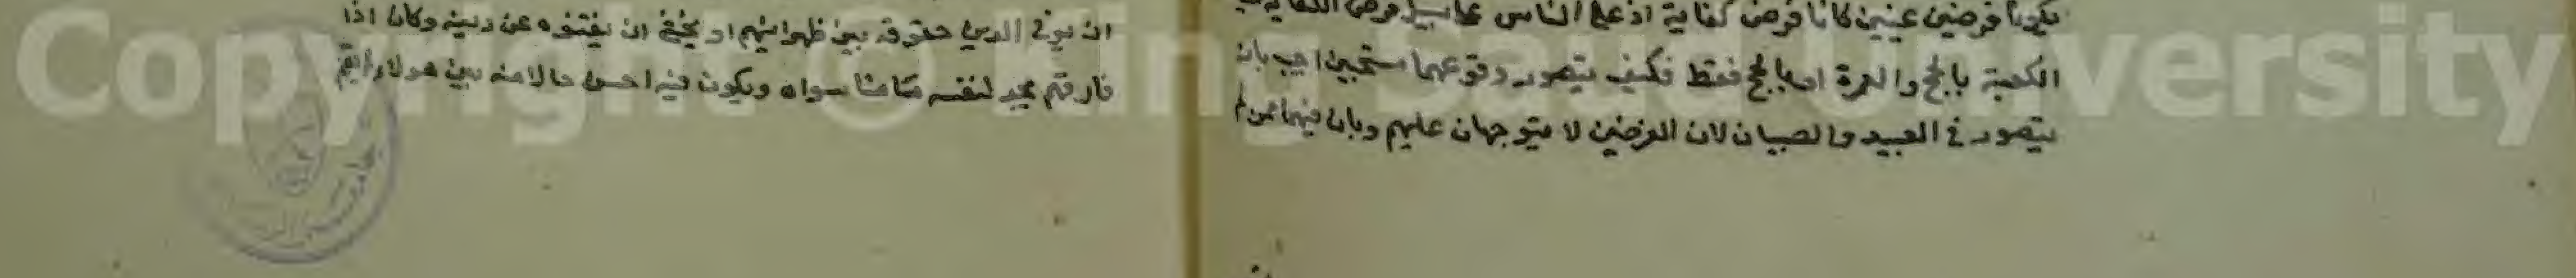 يكونا فرضين عينين كانا فرض كفاية اذ على الناس على سبيل فرض الكفاية
الكعبة بالحج والعمرة او بالحج فقط فكيف يتصور وقوعهما مستحبين اجيب بان
يتصور في العبيد والصبيان لان الفرضين لا يتوجهان عليهم وبان فيهما
ان يوفي الدين حقوقه بين ظهرانيهم او يخشى ان يفتنوه عن دينه وكان اذا
فارقتم يجد لنفسه متاعشا سواه ويكون فيه احسن حالا منه بين هولاء
Copyright © King Saud University